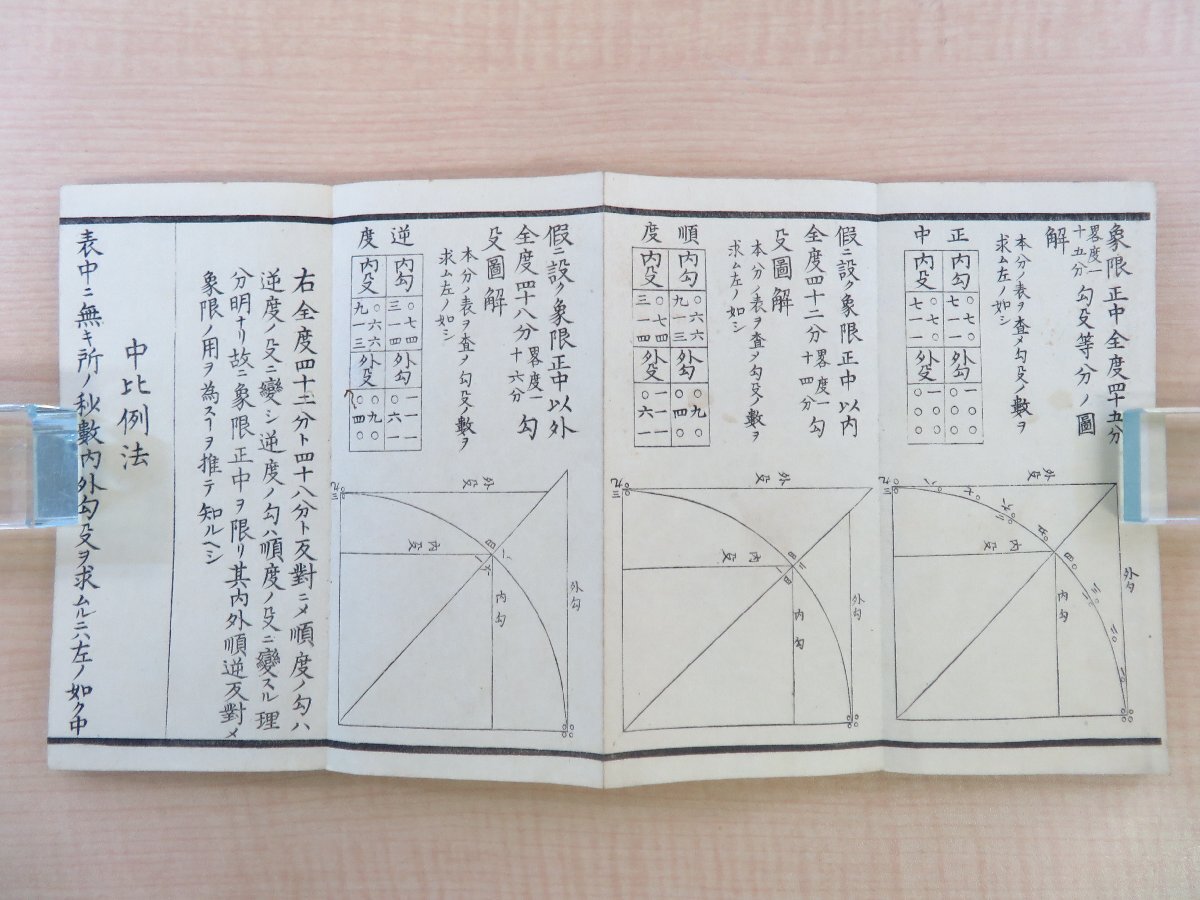 象限正中全度四十五分
畧度一
十五分
勾殳等分ノ圖
解
本分ノ表ヲ査メ勾殳ノ數ヲ
求ム左ノ如シ
正
中
内勾
〇七〇
七一一
外勾
一〇〇
〇〇
内殳
〇七〇
七一一
外殳
一〇〇
〇〇
外殳
内殳
内勾
外勾
假ニ設ク象限正中以内
全度四十二分
畧度一
十四分
勾
殳圖解
本分ノ表ヲ査メ勾殳ノ數ヲ
求ム左ノ如シ
順
度
内勾
〇六六
九一三
外勾
〇九〇
〇四〇
内殳
〇七四
三一四
外殳
一一一
〇六一
外殳
内殳
内勾
外勾
假ニ設ク象限正中以外
全度四十八分
畧度一
十六分
勾
殳圖解
本分ノ表ヲ査メ勾殳ノ數ヲ
求ム左ノ如シ
逆
度
内勾
〇七四
三一四
外勾
一一一
〇六一
内殳
〇六六
九一三
外殳
〇九〇
〇四〇
外殳
内殳
内勾
外勾
右全度四十二分ト四十八分ト反對ニメ順度ノ勾ハ
逆度ノ殳ニ變シ逆度ノ勾ハ順度ノ殳ニ變スル理
分明ナリ故ニ象限正中ヲ限リ其内外順逆反對メ
象限ノ用ヲ為スヿヲ推テ知ルヘシ
中比例法
表中ニ無キ所ノ秒數内外勾殳ヲ求ムルニハ左ノ如ク中